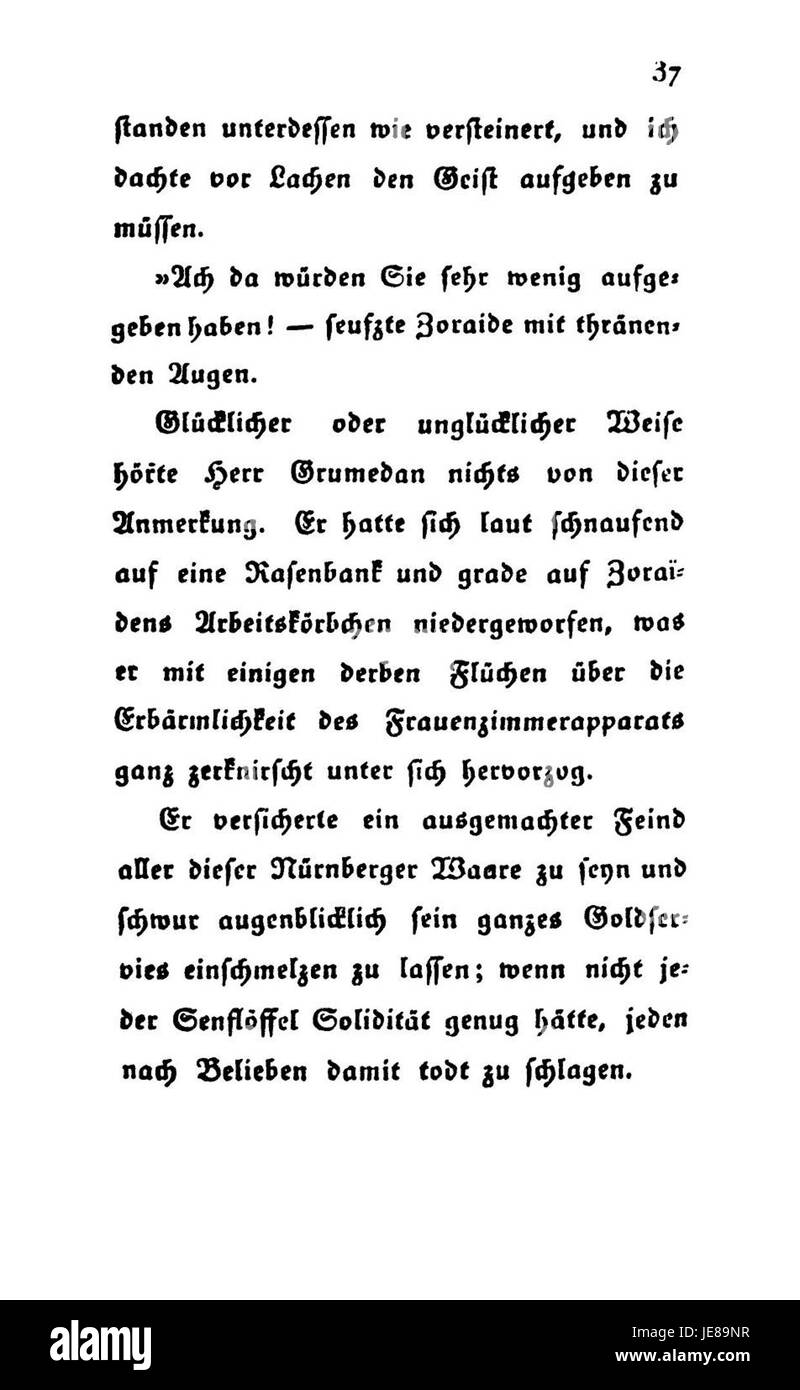 37
standen unterdessen wie versteinert, und ich
dachte vor Lachen den Geist aufgeben zu
müssen.
»Ach da würden Sie sehr wenig aufge-
geben haben! — seufzte Zoraide mit thränen-
den Augen.
Glücklicher oder unglücklicher Weise
hörte Herr Grumedan nichts von dieser
Anmerkung. Er hatte sich laut schnaufend
auf eine Rasenbank und grade auf Zoraï-
dens Arbeitskörbchen niedergeworfen, was
er mit einigen derben Flüchen über die
Erbärmlichkeit des Frauenzimmerapparats
ganz zerknirscht unter sich hervorzog.
Er versicherte ein ausgemachter Feind
aller dieser Nürnberger Waare zu seyn und
schwur augenblicklich sein ganzes Goldser-
vies einschmelzen zu lassen; wenn nicht je-
der Senflöffel Solidität genug hätte, jeden
nach Belieben damit todt zu schlagen.
alamy
Image ID: JE89NR
www.alamy.com